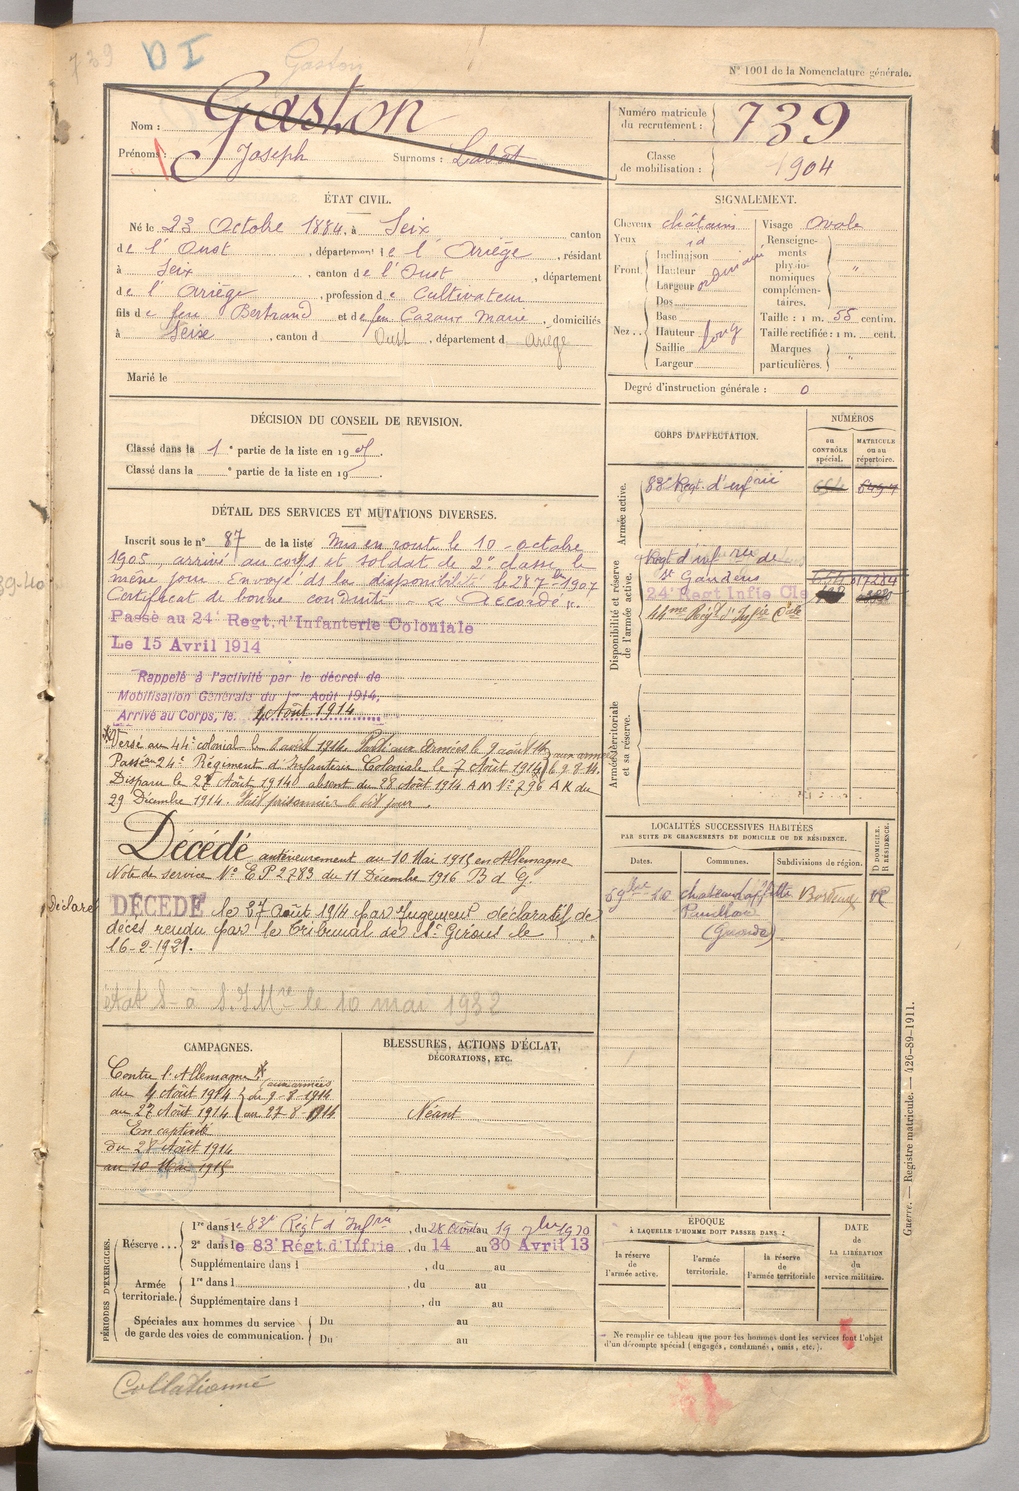 739 DI
Gaston
N° 1001 de la Nomenclature générale.
Nom : Gaston
Prénoms : Joseph Surnoms : Labat
Numéro matricule du recrutement : 739
Classe de mobilisation : 1904
ÉTAT CIVIL.
Né le 23 Octobre 1884, à Seix canton
de l'Oust, département de l'Ariège, résidant
à Seix, canton de l'Oust, département
de l'Ariège, profession de Cultivateur
fils de feu Bertrand et de feu Cazaux Marie, domiciliés
à Seix, canton d Oust, département d Ariège
Marié le
SIGNALEMENT.
Cheveux châtains
Yeux id
Front Inclinaison
Hauteur ordinaire
Largeur
Nez Dos
Base
Hauteur long
Saillie
Largeur
Visage Ovale
Renseignements physionomiques complémentaires. "
Taille : 1 m. 55 centim.
Taille rectifiée : 1 m. cent.
Marques particulières. "
Degré d'instruction générale : 0
DÉCISION DU CONSEIL DE REVISION.
Classé dans la 1e partie de la liste en 1905.
Classé dans la e partie de la liste en 19
DÉTAIL DES SERVICES ET MUTATIONS DIVERSES.
Inscrit sous le n° 87 de la liste Mis en route le 10 octobre
1905, arrivé au corps et soldat de 2e classe le
même jour. Envoyé ds la disponibilité le 28 7bre 1907
Certificat de bonne conduite "Accordé".
Passé au 24e Regt. d'Infanterie Coloniale
Le 15 Avril 1914
Rappelé à l'activité par le décret de
Mobilisation Générale du 1er Août 1914,
Arrivé au Corps, le 4 Août 1914
Versé au 44e colonial le 8 août 1914 Parti aux Armées le 9 août 1914
Passé au 24e Régiment d'Infanterie Coloniale le 7 Août 1914 aux armées 9.8.14.
Disparu le 27 Août 1914 absent du 28 Août 1914 AM N° 796 AK du
29 Décembre 1914. Fait prisonnier le dit jour.
Décédé antérieurement au 10 Mai 1915 en Allemagne
Note de service N° EP2783 du 11 Décembre 1916 B d G.
Déclaré DÉCÉDÉ le 27 Août 1914 par Jugement déclaratif de
décès rendu par le tribunal de St Girons le
16-2-1921.
le 10 mai 1932
CORPS D'AFFECTATION.
NUMÉROS
au CONTRÔLE spécial.
MATRICULE ou au répertoire.
Armée active.
83e Régt. d'infrie
Disponibilité et réserve de l'armée active.
Régt d'infrie de
St Gaudens
24e Regt Infie Cle
44me Régt d'Infie Cale
Armée territoriale et sa réserve.
LOCALITÉS SUCCESSIVES HABITÉES
PAR SUITE DE CHANGEMENTS DE DOMICILE OU DE RÉSIDENCE.
Dates. Communes. Subdivisions de région. D DOMICILE, R RÉSIDENCE.
Chateau Laffitte Bordeaux R
Pauillac
(Gironde)
CAMPAGNES.
Contre l'Allemagne
du 4 Août 1914
au 27 Août 1914
aux armées
du 9-8-1914
au 27-8-1914
En captivité
du 28 Août 1914
au 10 Mai 1915
BLESSURES, ACTIONS D'ÉCLAT, DÉCORATIONS, ETC.
Néant
PÉRIODES D'EXERCICES.
Réserve ... 1re dans le 83e Régt d'Infrie, du 28 Août au 19 7bre 1910
2e dans le 83e Régt. d'Infrie, du 14 au 30 Avril 13
Supplémentaire dans l , du au
Armée territoriale. 1re dans l , du au
Supplémentaire dans l , du au
Spéciales aux hommes du service de garde des voies de communication. Du au
Du au
ÉPOQUE
À LAQUELLE L'HOMME DOIT PASSER DANS :
la réserve de l'armée active.
l'armée territoriale.
la réserve de l'armée territoriale
DATE de LA LIBÉRATION du service militaire.
Ne remplir ce tableau que pour les hommes dont les services font l'objet
d'un décompte spécial (engagés, condamnés, omis, etc.).
Guerre. — Registre matricule. — 426-89-1911.
Collationné